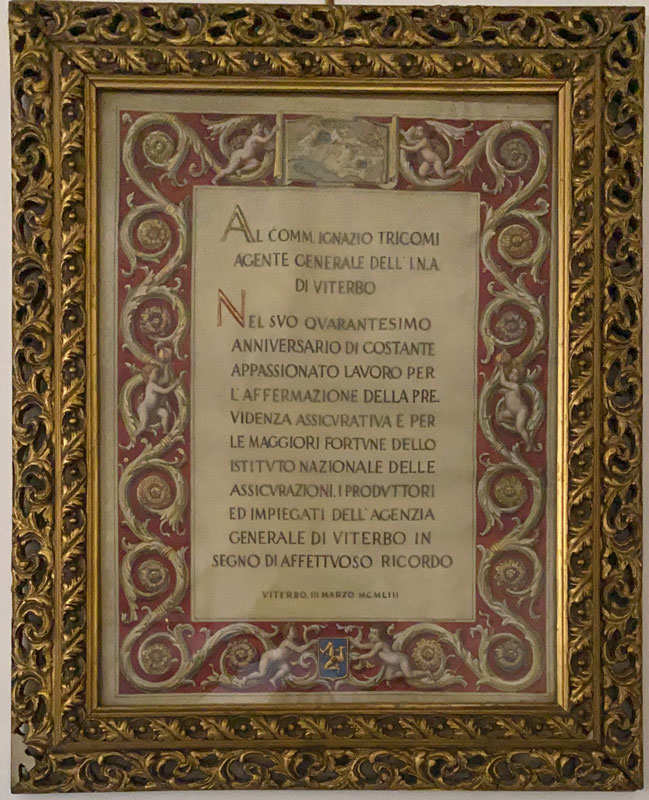 AL COMM. IGNAZIO TRICOMI
AGENTE GENERALE DELL' I.N.A.
DI VITERBO
NEL SVO QVARANTESIMO
ANNIVERSARIO DI COSTANTE
APPASSIONATO LAVORO PER
L'AFFERMAZIONE DELLA PRE.
VIDENZA ASSICVRATIVA E PER
LE MAGGIORI FORTVNE DELLO
ISTITVTO NAZIONALE DELLE
ASSICVRAZIONI. I PRODVTTORI
ED IMPIEGATI DELL'AGENZIA
GENERALE DI VITERBO IN
SEGNO DI AFFETTVOSO RICORDO
VITERBO. III MARZO MCMLIII